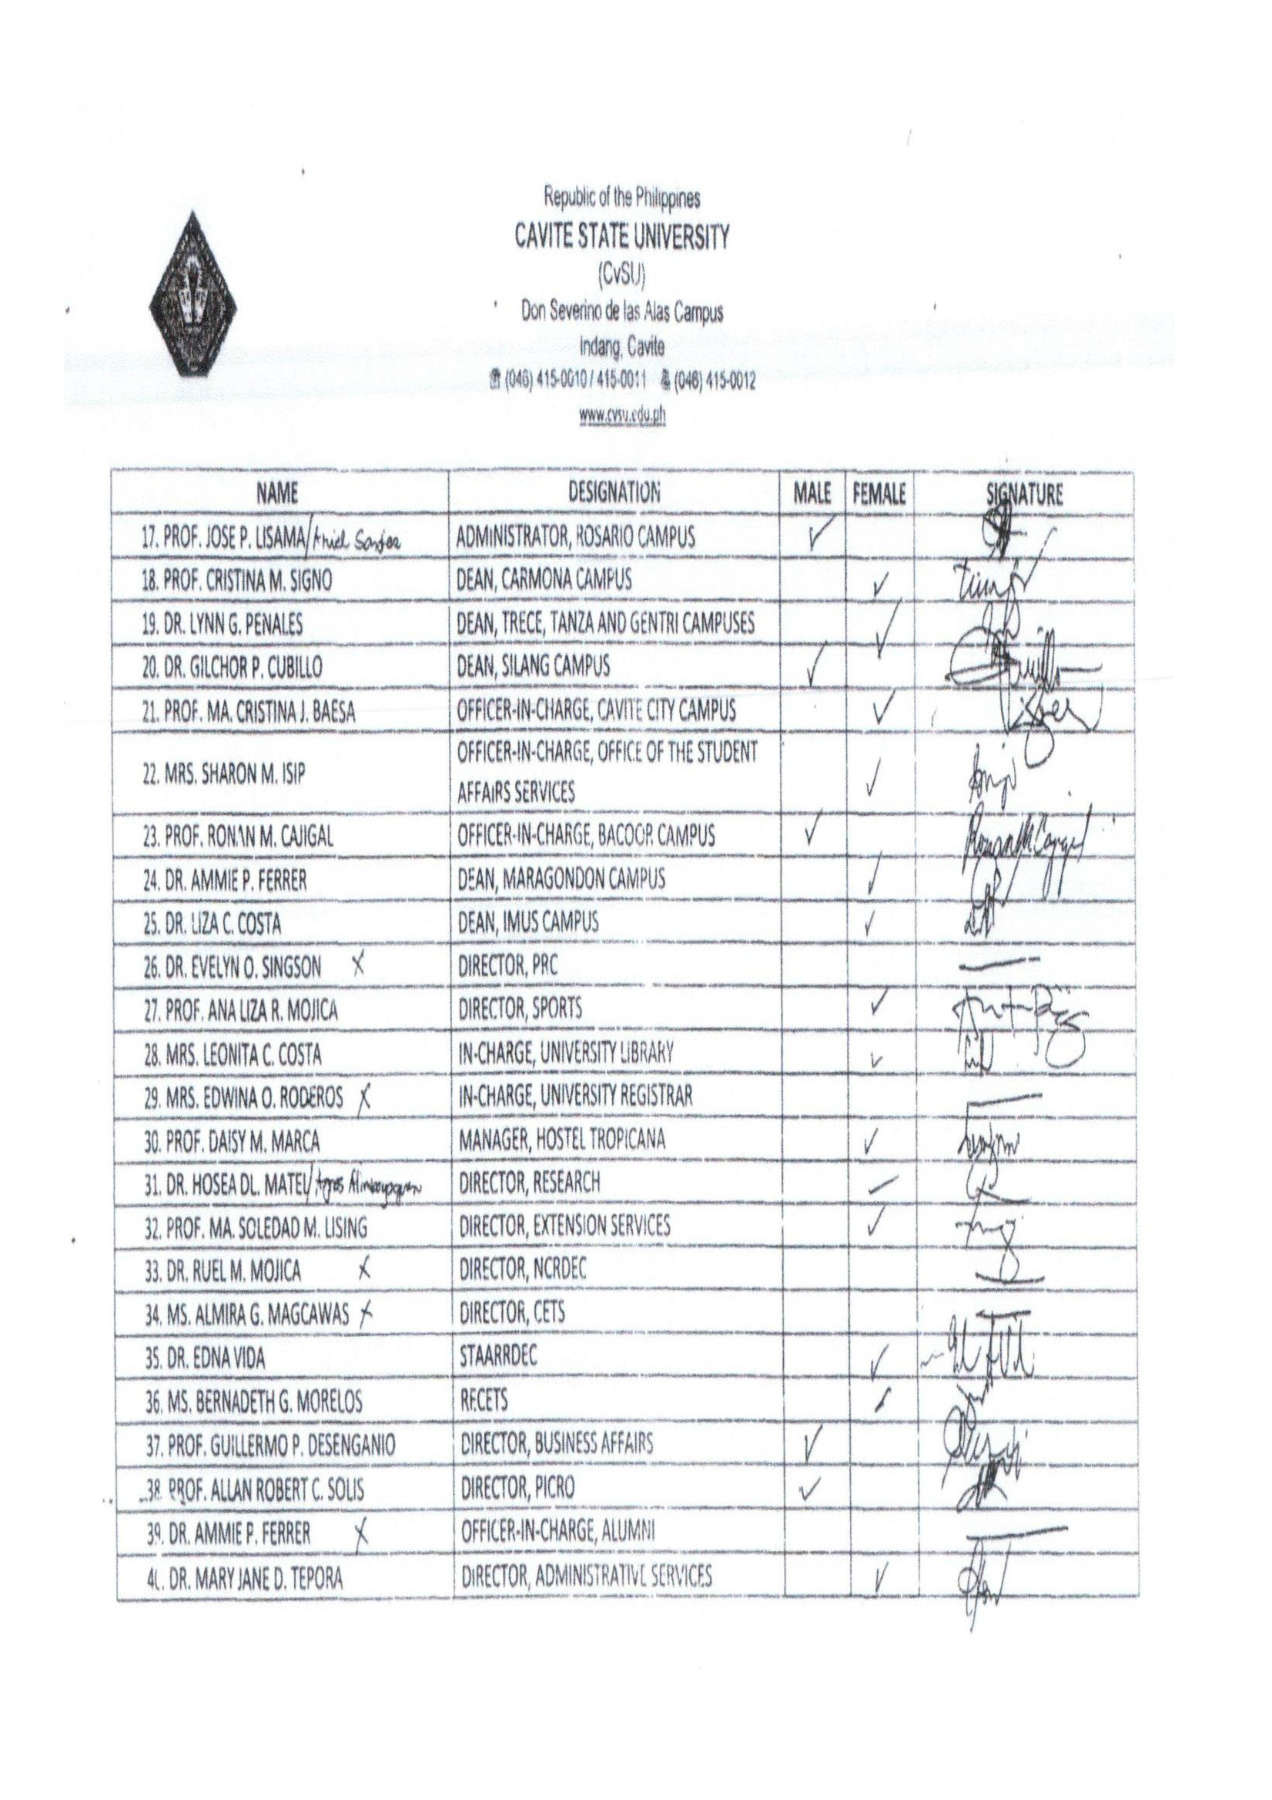 Republic of the Philippines
CAVITE STATE UNIVERSITY
(CvSU)
Don Severino de las Alas Campus
Indang, Cavite
(046) 415-0010 / 415-0011 (046) 415-0012
www.cvsu.edu.ph
NAME DESIGNATION MALE FEMALE SIGNATURE
17. PROF. JOSE P. LISAMA/ ADMINISTRATOR, ROSARIO CAMPUS ✓
18. PROF. CRISTINA M. SIGNO DEAN, CARMONA CAMPUS ✓
19. DR. LYNN G. PENALES DEAN, TRECE, TANZA AND GENTRI CAMPUSES ✓
20. DR. GILCHOR P. CUBILLO DEAN, SILANG CAMPUS ✓
21. PROF. MA. CRISTINA J. BAESA OFFICER-IN-CHARGE, CAVITE CITY CAMPUS ✓
22. MRS. SHARON M. ISIP OFFICER-IN-CHARGE, OFFICE OF THE STUDENT
AFFAIRS SERVICES ✓
23. PROF. RONAN M. CAJIGAL OFFICER-IN-CHARGE, BACOOR CAMPUS ✓
24. DR. AMMIE P. FERRER DEAN, MARAGONDON CAMPUS ✓
25. DR. LIZA C. COSTA DEAN, IMUS CAMPUS ✓
26. DR. EVELYN O. SINGSON X DIRECTOR, PRC
27. PROF. ANA LIZA R. MOJICA DIRECTOR, SPORTS ✓
28. MRS. LEONITA C. COSTA IN-CHARGE, UNIVERSITY LIBRARY ✓
29. MRS. EDWINA O. RODEROS X IN-CHARGE, UNIVERSITY REGISTRAR
30. PROF. DAISY M. MARCA MANAGER, HOSTEL TROPICANA ✓
31. DR. HOSEA DL. MATEL/ DIRECTOR, RESEARCH ✓
32. PROF. MA. SOLEDAD M. LISING DIRECTOR, EXTENSION SERVICES ✓
33. DR. RUEL M. MOJICA X DIRECTOR, NCRDEC
34. MS. ALMIRA G. MAGCAWAS X DIRECTOR, CETS
35. DR. EDNA VIDA STAARRDEC ✓
36. MS. BERNADETH G. MORELOS RECETS ✓
37. PROF. GUILLERMO P. DESENGANIO DIRECTOR, BUSINESS AFFAIRS ✓
38. PROF. ALLAN ROBERT C. SOLIS DIRECTOR, PICRO ✓
39. DR. AMMIE P. FERRER X OFFICER-IN-CHARGE, ALUMNI
40. DR. MARY JANE D. TEPORA DIRECTOR, ADMINISTRATIVE SERVICES ✓